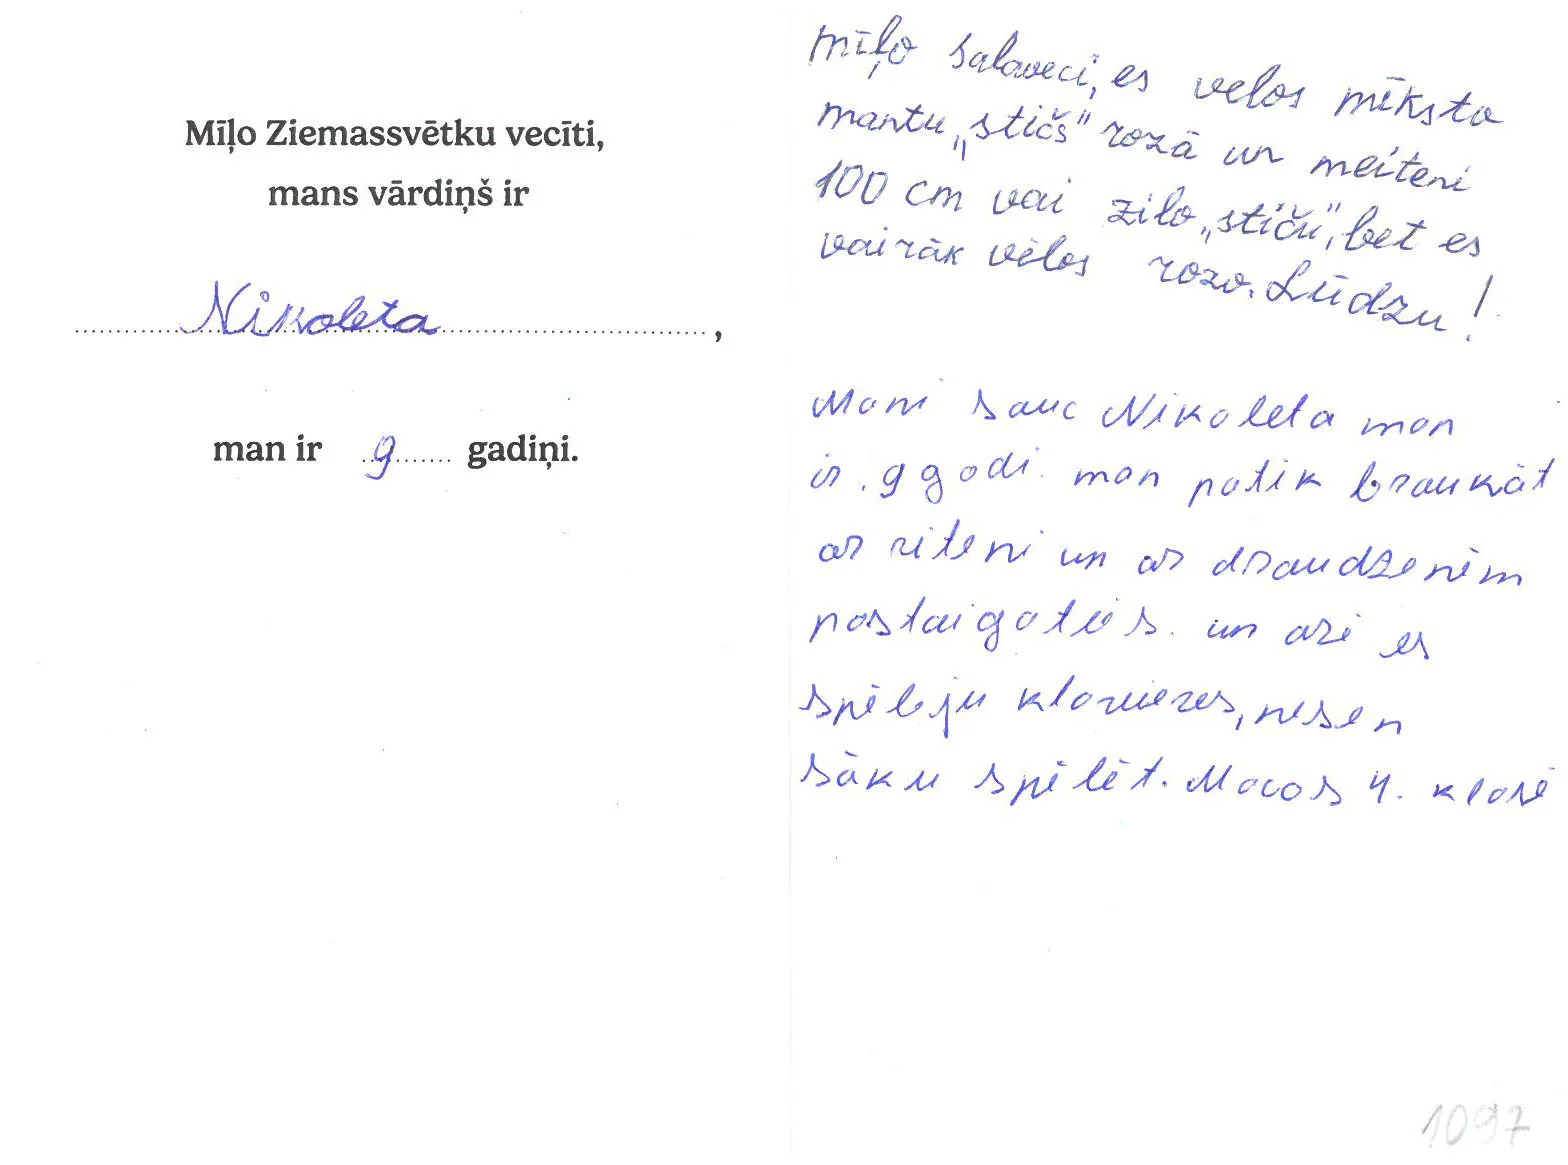 Mīļo Ziemassvētku vecīti,
mans vārdiņš ir
Nikoleta,
man ir 9 gadiņi.
mīļo salaveci, es velos mīksto
mantu „stičs" rozā un meiteni
100 cm vai zilo „stiču", bet es
vairāk vēlos rozo. Lūdzu!
Mani sauc Nikoleta man
ir. 9 gadi. man patik braukāt
ar riteni un ar draudzenēm
pastaigaties. un arī es
spēlēju klavieres, nesen
sāku spēlēt. Macos 4. klasē
1097